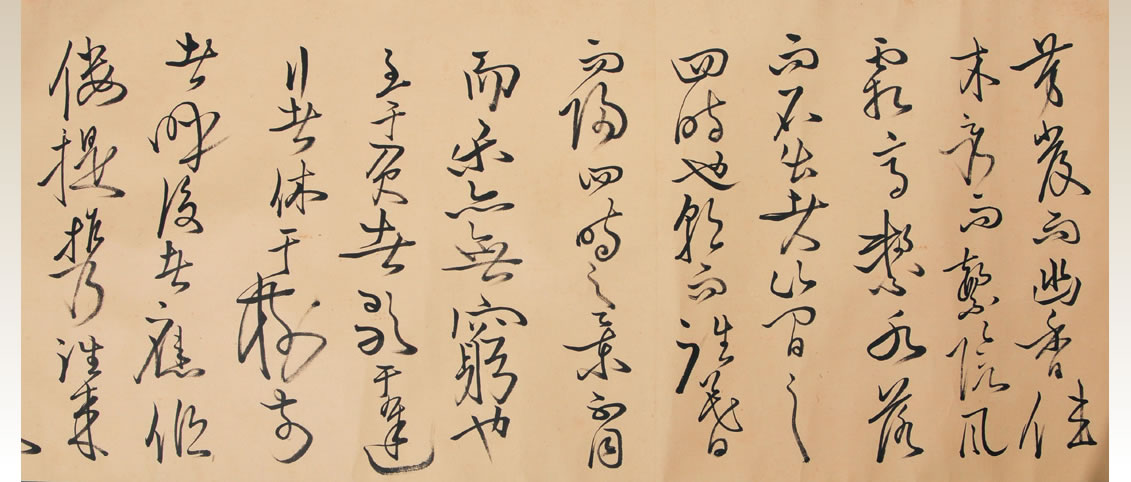 芳發而幽香佳
木秀而繁陰風
霜高潔水落
而石出者山間之
四時也朝而往暮
而歸四時之景不同
而樂亦無窮也
至于負者歌于途
行者休于樹前
者呼後者應傴
僂提攜往來